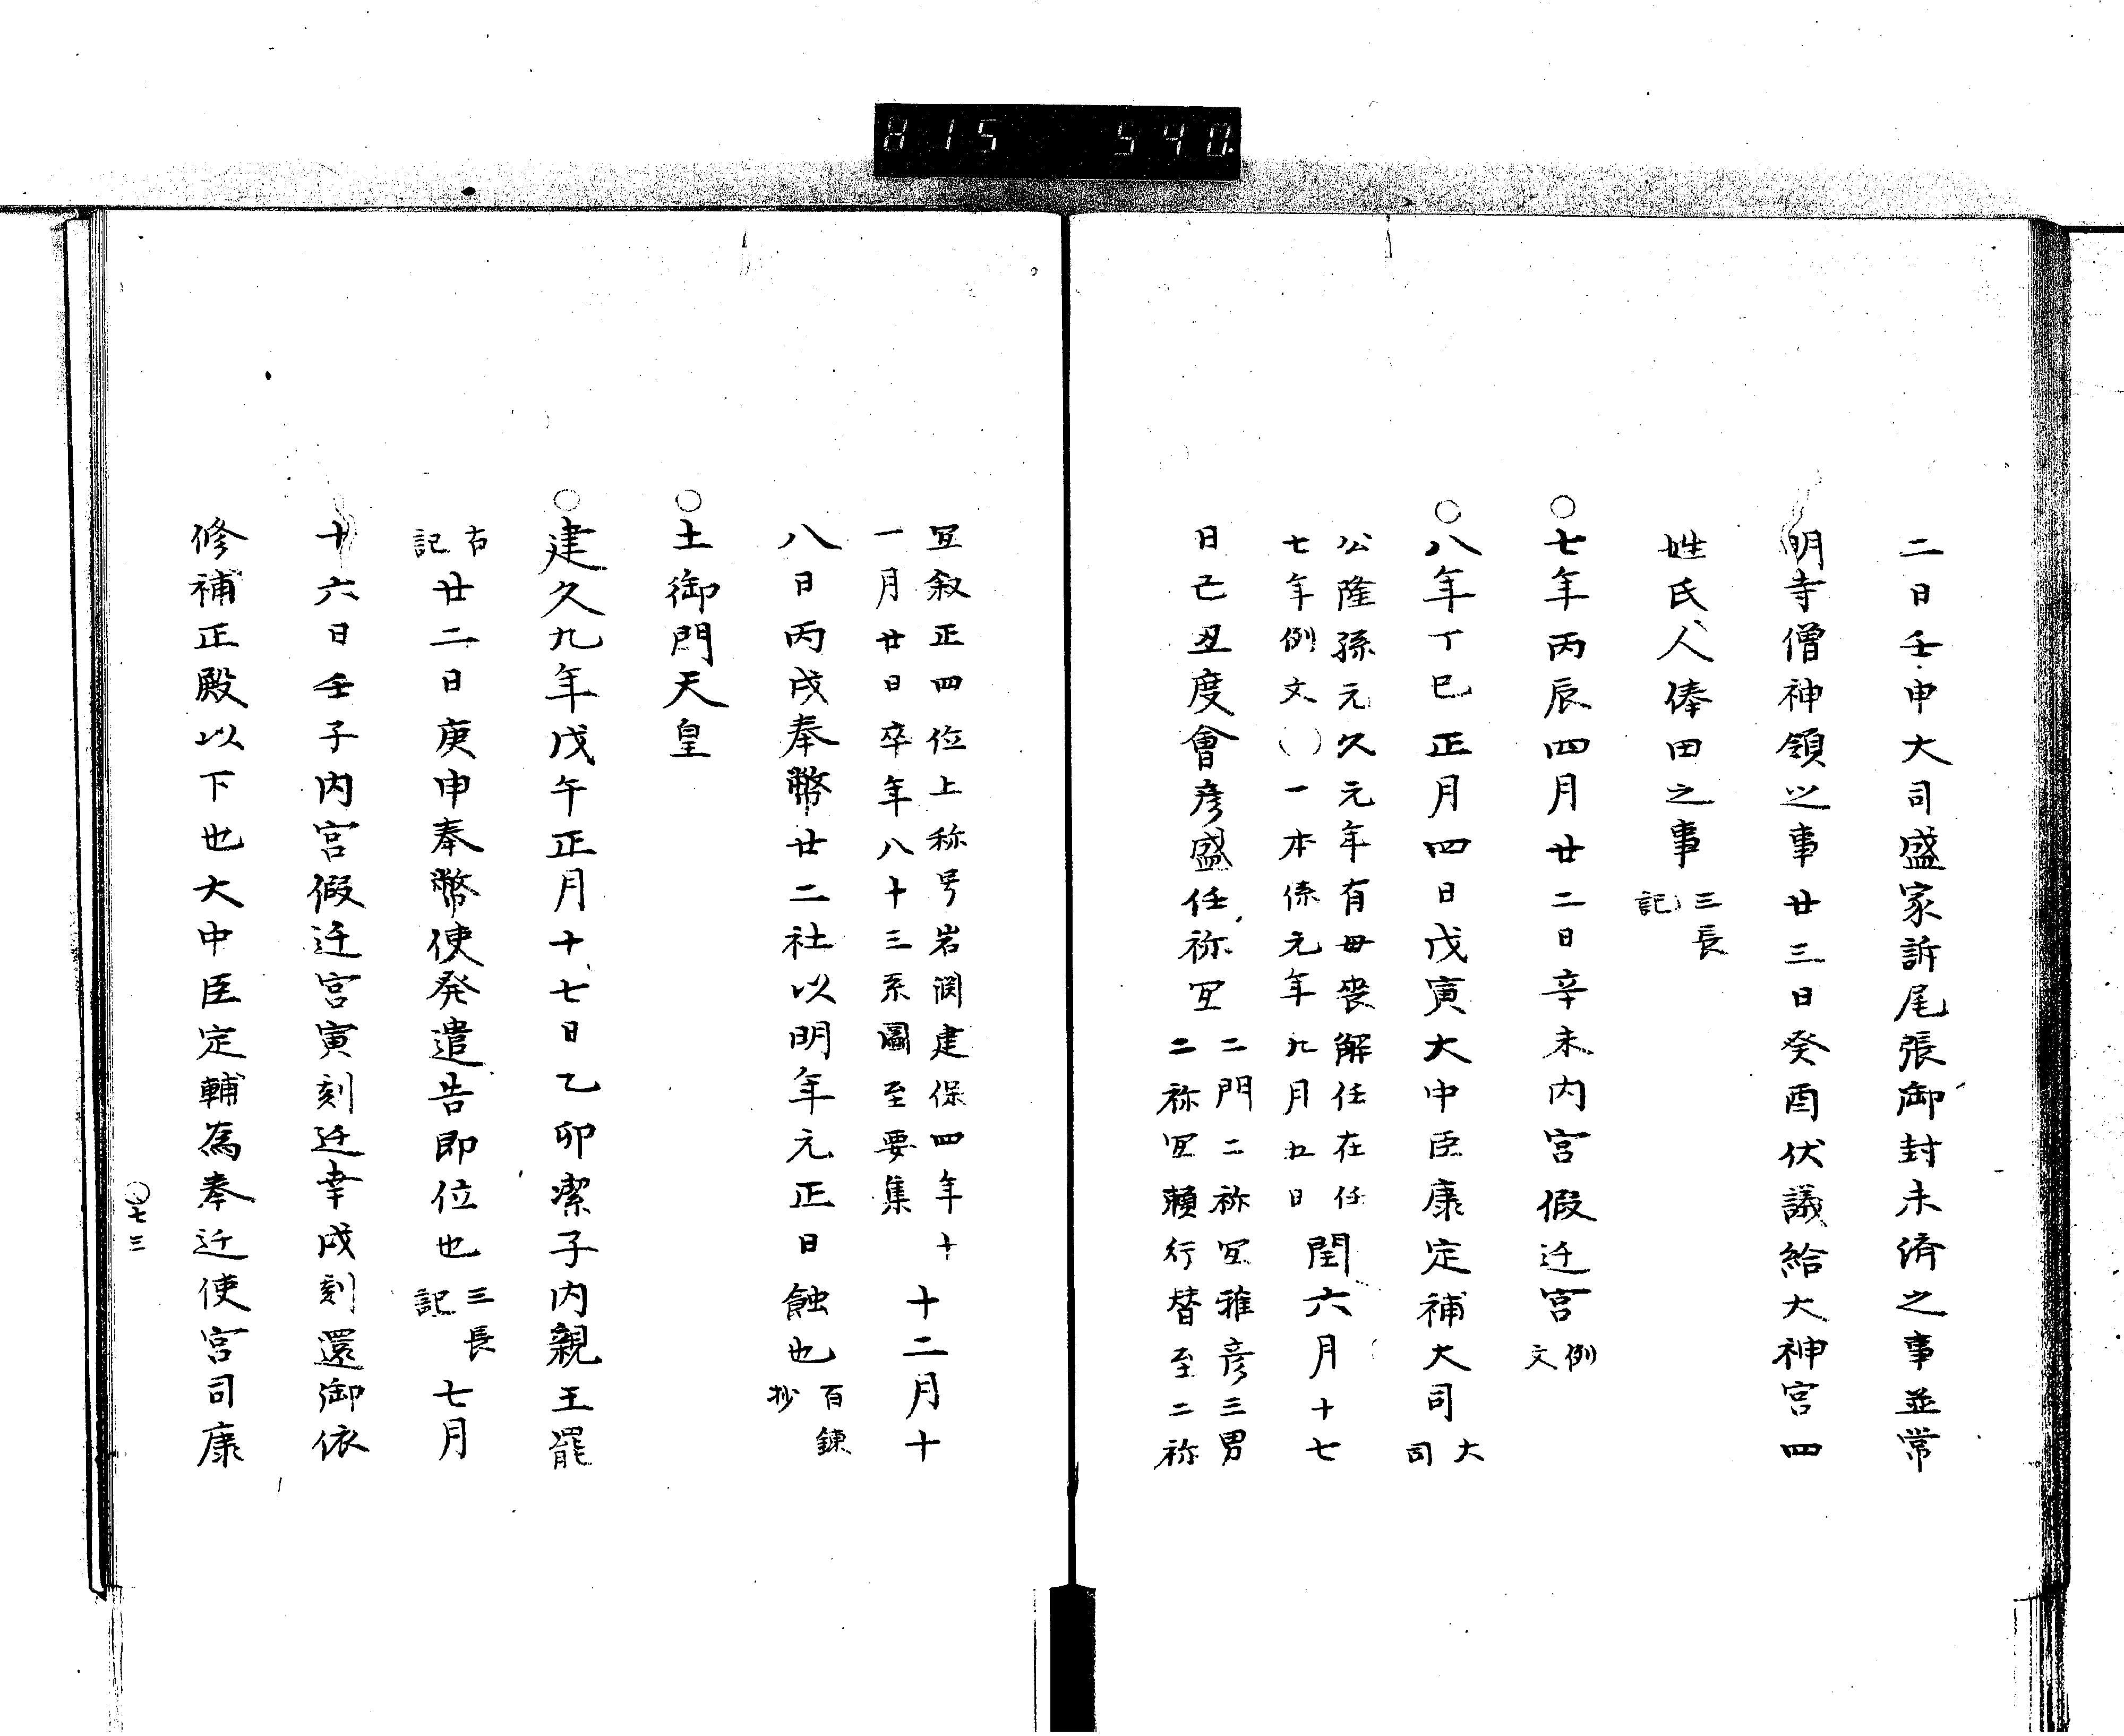 815 540
二日壬申大司盛家訴尾張御封未済之事並常
明寺僧神領之事廿三日癸酉伏議給大神宮四
姓氏人俸田之事三長記
○七年丙辰四月廿二日辛未内宮假迁宮例文
○八年丁巳正月四日戊寅大中臣康定補大司大司
公隆孫元久元年有母喪解任在任
七年例文○一本係元年九月五日
閏六月十七
日己丑度會彦盛任祢冝
二門二祢冝雅彦三男
二祢冝頼行替至二祢
冝叙正四位上称号岩渕建保四年十
一月廿日卒年八十三系圖至要集
十二月十
八日丙戌奉幣廿二社以明年元正日蝕也百錬抄
○土御門天皇
○建久九年戊午正月十七日乙卯潔子内親王罷
古記廿二日庚申奉幣使発遣告即位也三長記七月
十六日壬子内宮假迁宮寅刻迁幸戌刻還御依
修補正殿以下也大中臣定輔為奉迁使宮司康
○七三